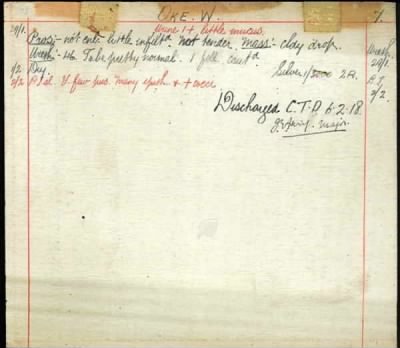 OKE. W. 7.
Urine 1+ little mucus.
29/1. Pros:- not enl. little infiltd. not tender. Mass:- cldy drop. Wash.
Ureth:- to be pretty normal. 1 foll 29/1.
1/2 Dry. Silver 1/ 2%.
5/2 V. few pus. many epith + + cocci 5/2.
Discharged C.T.D. 6-2-18.
Major.